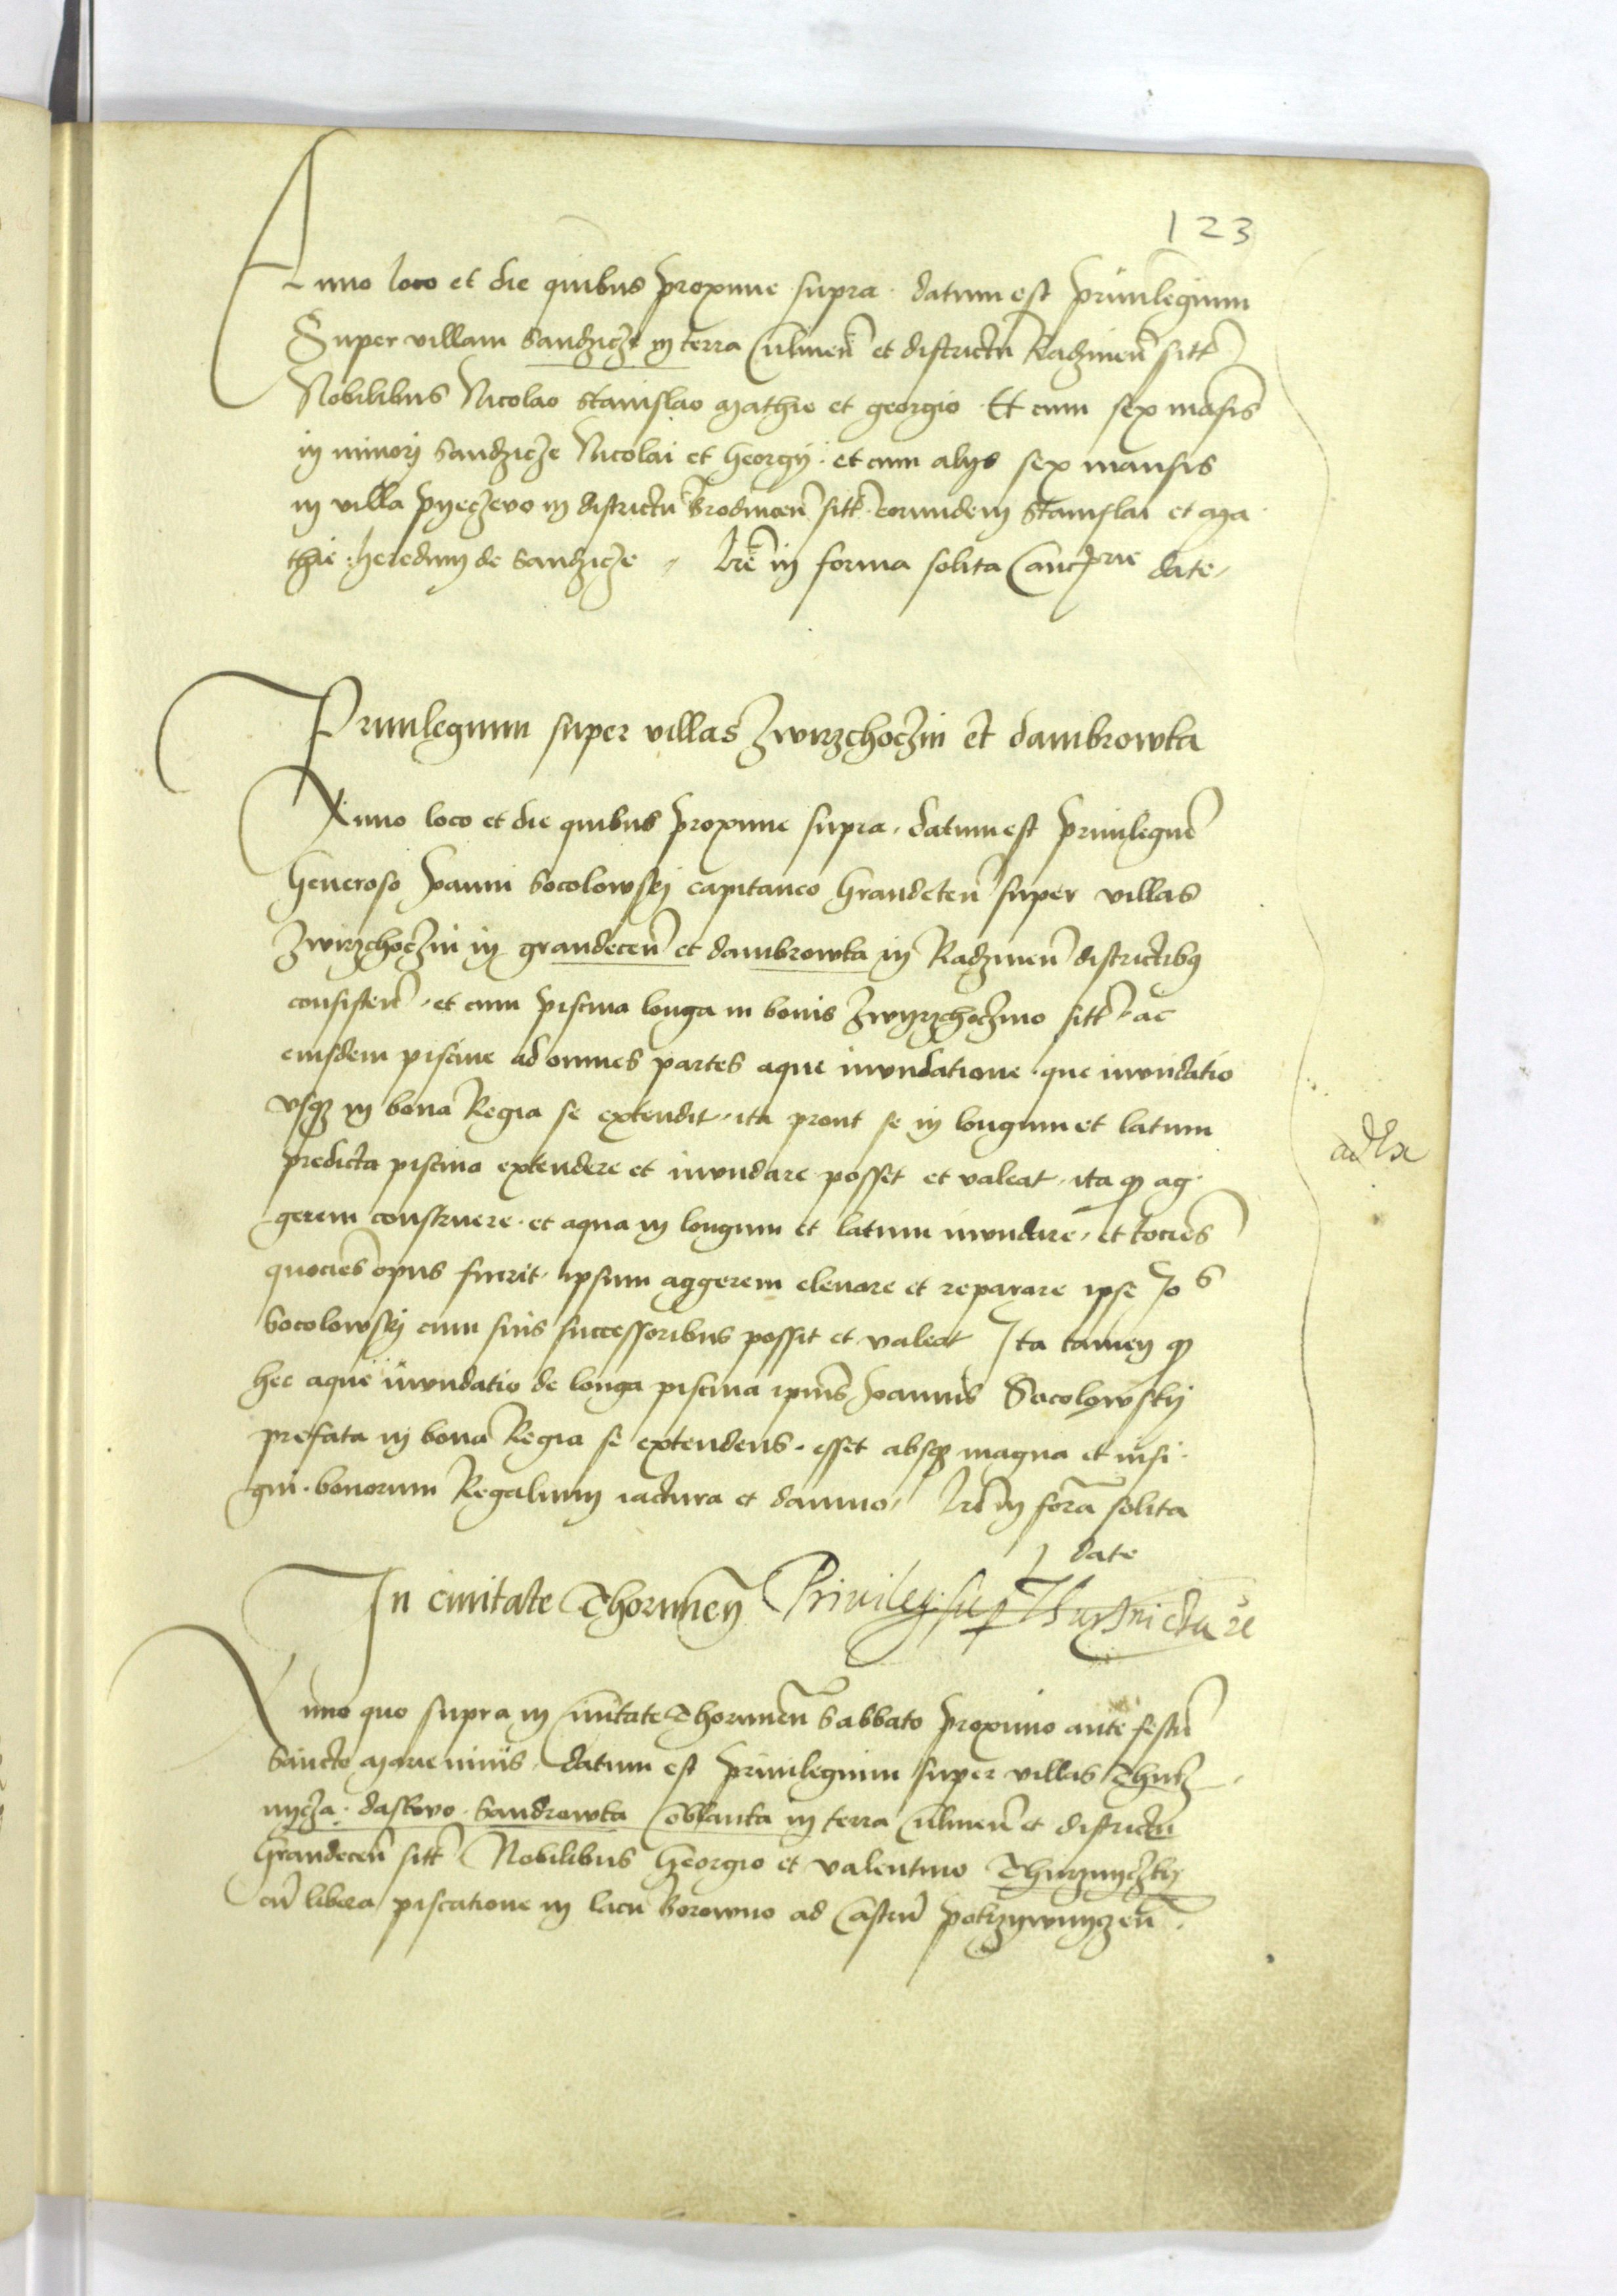 123
Anno loco et die quibus proxime supra · datum est priuilegium
Super villam Sandzicze in terra Culmen̄ et districtu Radzinen̄ sitt̄
Nobilibus Nicolao Stanislao Mathie et georgio Et cum sex mās̄is
in minorj Sandzicze Nicolai et Georgij · et cum alijs sex mansis
in villa pyeczewo in districtu Brodnicen̄ sitt̄ eorundem Stanislai et Ma
thie · heredum de Sandzicze · Lrē in forma solita Canc̄rie date ·
Priuilegium super villas Zwirzchoczin et dambrowka
Anno loco et die quibus proxime supra · datum est priuilegiū
Generoso Joanni Socolowskj capitaneo Graudeten̄ super villas
Zwirzchoczin in graudecen̄ et dambrowka in Radzinen̄ districtibq
consisten̄ · et cum piscina longa in bonis Zwyrzchoczino sitt̄ · ac
eiusdem piscine ad omnes partes aque inundatione · que inundatio
vsqз in bona Regia se extendit · ita prout se in longum et latum
predicta piscina extendere et inundare posset et valeat · ita qꝫ ag
gerem construere · et aqua in longum et latum inundare · et tociēs
quociēs opus fuerit · ipsum aggerem eleuare et reparare ipse Joˢ
Socolowskj cum suis successoribus possit et valeat Ita tamen qꝫ
hec aque inundatio de longa piscina ipīus Joannis Socolowskij
prefata in bona Regia se extendens · esset absqз magna et insi
gni · bonorum Regalium iactura et damno / Lrē in forā solita
date
ad
In ciuitate Thorunen̄ Priuileg · sup
Anno quo supra in Ciuitate Thorunen̄ Sabbato proximo ante festū
Sancte Marie niuis · datum est priuilegium super villas Thurz
nycza · daskowo · Sandrowka Coblanka in terra Culmen̄ et districtu
Graudecen̄ sitt̄ Nobilibus Georgio et valentino Thurznyczkij
cū libera piscatione in lacu Borowno ad Castrū pokrzywnyczen̄ ·